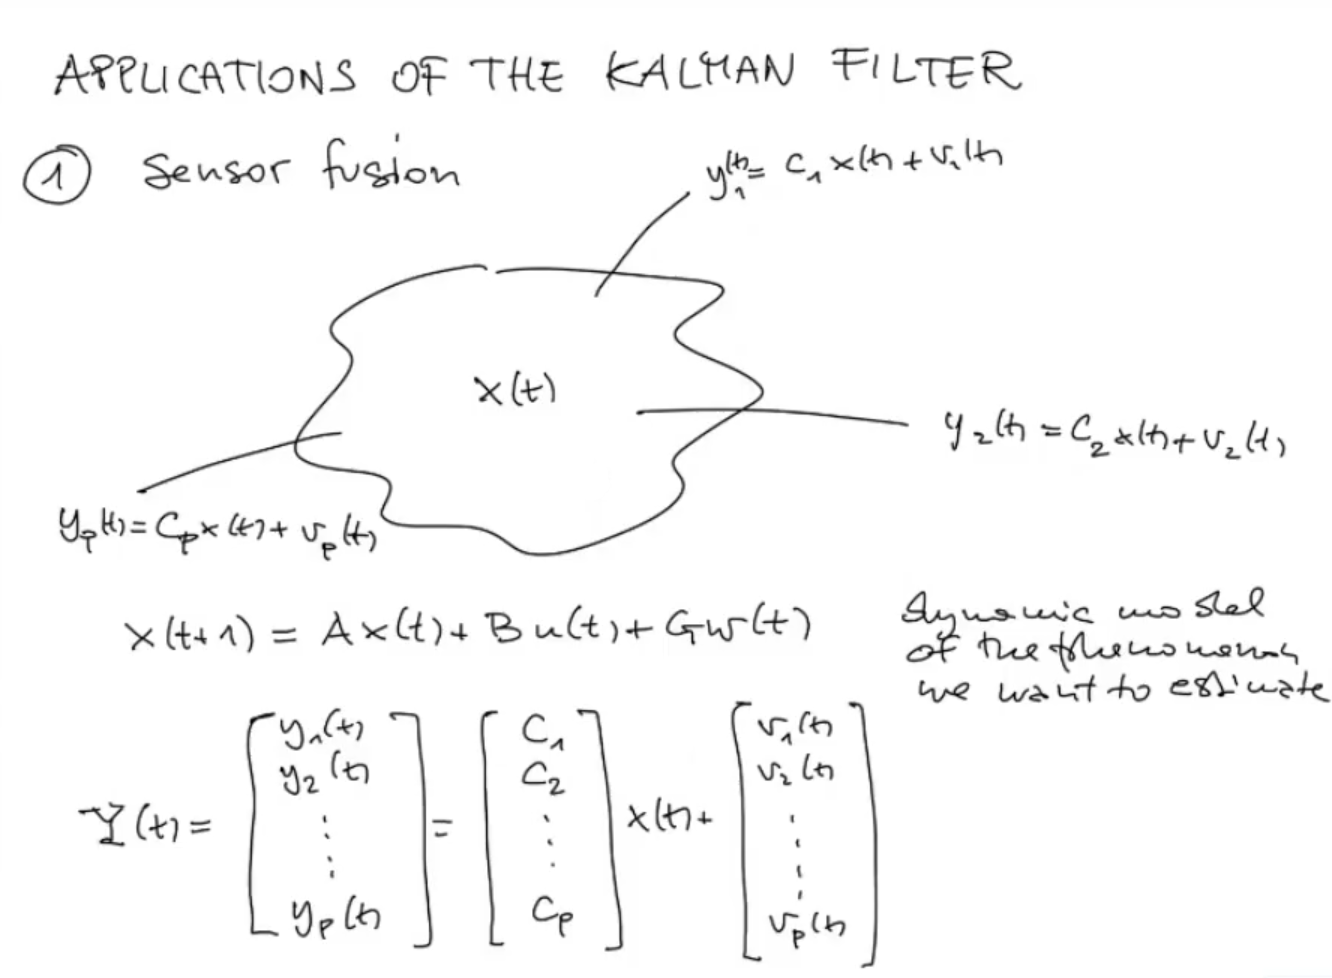 APPLICATIONS OF THE KALMAN FILTER
① Sensor fusion
y₁(t) = C₁x(t) + v₁(t)
x(t)
y₂(t) = C₂x(t) + v₂(t)
yₚ(t) = Cₚx(t) + vₚ(t)
x(t+1) = Ax(t) + Bu(t) + Gw(t)
dynamic model
of the phenomenon
we want to estimate
Y(t) = [y₁(t) y₂(t) ⋮ yₚ(t)] = [C₁ C₂ ⋮ Cₚ] x(t) + [v₁(t) v₂(t) ⋮ vₚ(t)]